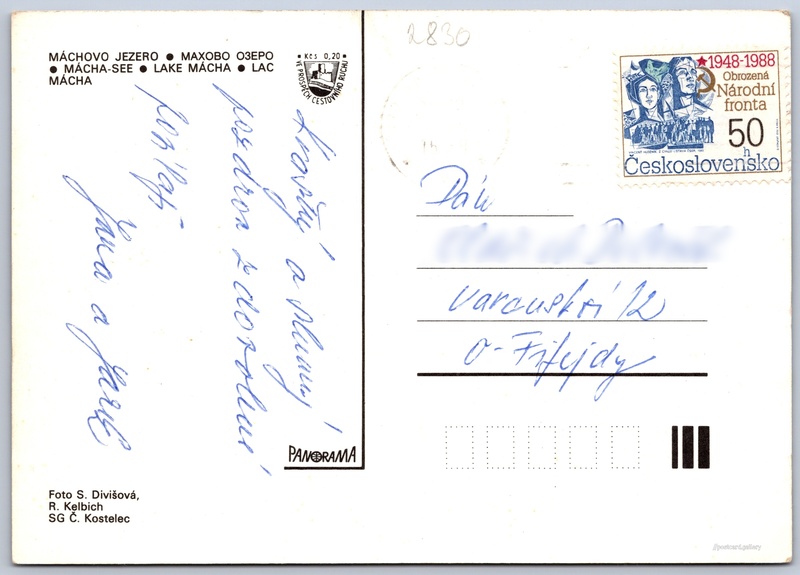 MÁCHOVO JEZERO ● МАХОВО ОЗЕРО
● MÁCHA-SEE ● LAKE MÁCHA ● LAC
MÁCHA
Kčs 0,20
VE PROSPĚCH CESTOVNÍHO RUCHU
Krásný a slunný
pozdrav z dovolené
posílají
Jana a Jarek
PANORAMA
Foto S. Divišová,
R. Kelbich
SG Č. Kostelec
2830
★1948-1988
Obrozená
Národní
fronta
50
h
Československo
Pán
Varenská 12
O-Fifejdy